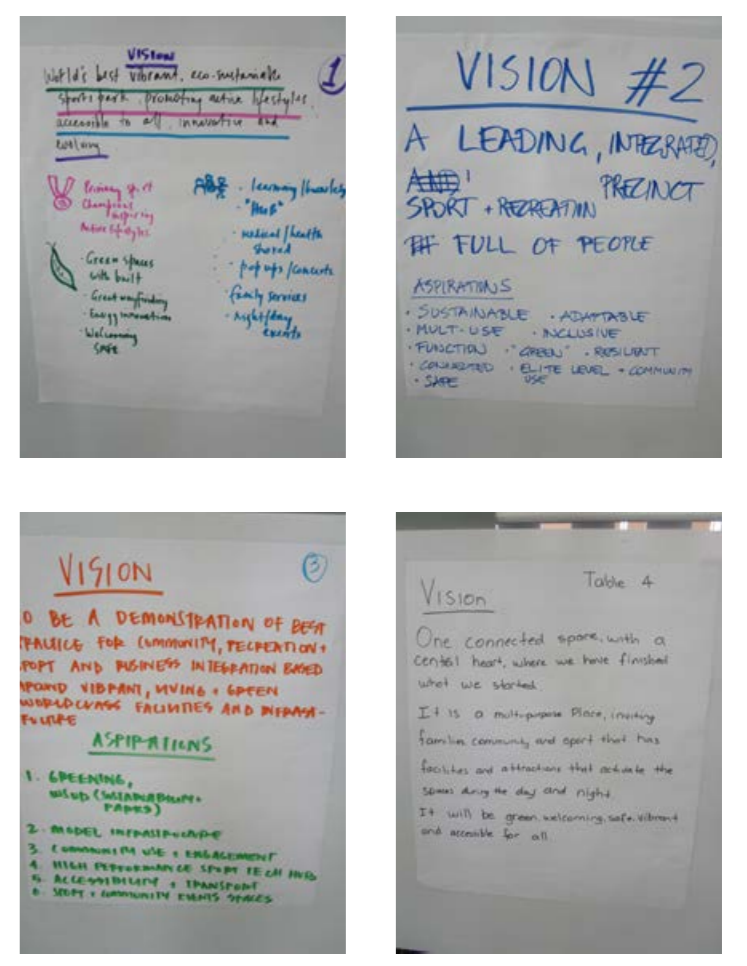 VISION
1
World's best vibrant, eco-sustainable
sports park, promoting active lifestyles,
accessible to all, innovative and
evolving
Primary sport
Champions
inspiring
Active lifestyles
Green spaces
with built
Great wayfinding
Energy innovations
Welcoming
SAFE
learning/knowledge
"Hub"
medical/health
shared
pop ups/concerts
family services
Night/day
events
VISION #2
A LEADING, INTEGRATED,
PRECINCT
SPORT + RECREATION
FULL OF PEOPLE
ASPIRATIONS
· SUSTAINABLE · ADAPTABLE
· MULTI-USE · INCLUSIVE
· FUNCTION · "GREEN" · RESILIENT
· CONNECTED · ELITE LEVEL + COMMUNITY
· SAFE USE
VISION
3
O BE A DEMONSTRATION OF BEST
RACTICE FOR COMMUNITY, RECREATION +
PORT AND BUSINESS INTEGRATION BASED
ROUND VIBRANT, LIVING + GREEN
WORLDCLASS FACILITIES AND INFRASTR-
UCTURE
ASPIRATIONS
1. GREENING,
WSUD (SUSTAINABILITY +
PARKS)
2. MODEL INFRASTRUCTURE
3. COMMUNITY USE + ENGAGEMENT
4. HIGH PERFORMANCE SPORT TECH HUB
5. ACCESSIBILITY + TRANSPORT
6. SPORT + COMMUNITY EVENTS SPACES
Table 4
Vision
One connected space, with a
central heart, where we have finished
what we started.
It is a multi-purpose Place, inviting
families community and sport that has
facilities and attractions that activate the
spaces during the day and night.
It will be green, welcoming, safe, vibrant
and accessible for all.